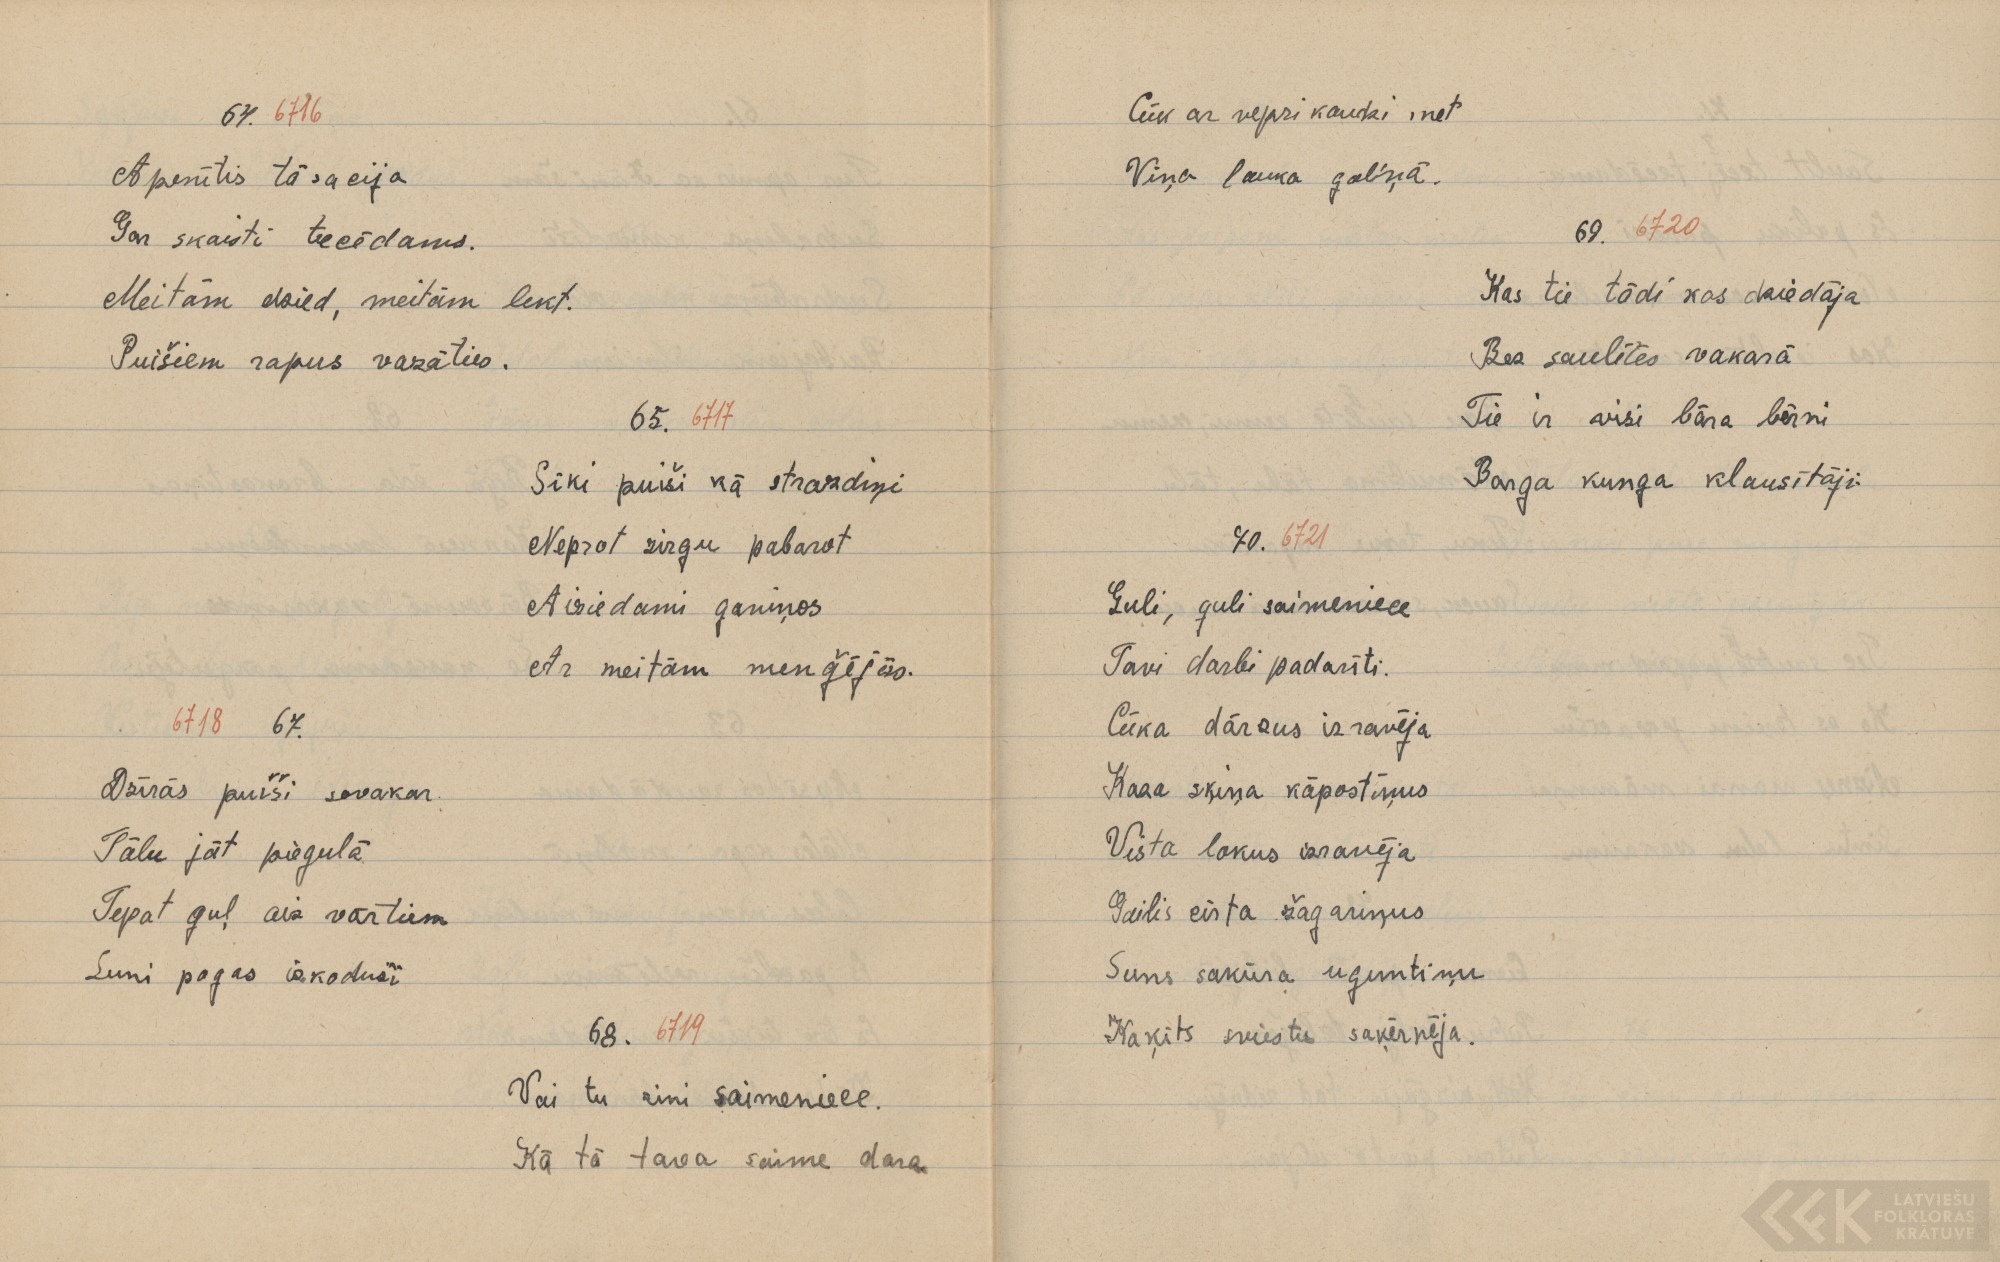 64. 6716
Apenītis tā sacīja
Gar skaisti tecēdams.
Meitām dzied, meitām lekt.
Puišiem rapus vazāties.
65. 6717
Sīki puiši kā strazdiņi
Neprot zirgu pabarot
Aiziedami ganiņos
Ar meitām menģējās.
6718 67.
Dzīrās puiši sovakar
Tālu jāt pieguļā
Tepat guļ aiz vārtiem
Suni pogas izkoduši
68. 6719
Vai tu zini saimeniece.
Kā tā tava saime dara
Cūk ar vepri kaudzi met
Viņa lauka galiņā.
69. 6720
Kas tie tādi kas dziedāja
Bez saulītes vakarā
Tie ir visi bāra bērni
Barga kunga klausītāji
70. 6721
Guli, guli saimeniece
Tavi darbi padarīti.
Cūka dārzus izravēja
Kaza šķiņa kāpostiņus
Vista lokus izravēja
Gailis cirta žagariņus
Suns sakūra uguntiņu
Kaķits sviestu saķērnēja.
LATVIEŠU
FOLKLORAS
KRĀTUVE